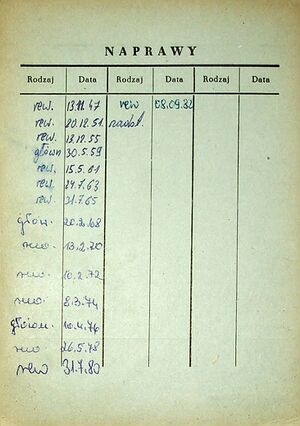 NAPRAWY
Rodzaj Data Rodzaj Data Rodzaj Data
rew. 13.11.47 rew 08.09.82
rew. 20.12.51
rew. 12.12.55
główn 30.5.59
rew. 15.5.61
rew. 24.7.63
rew. 31.7.65
główn. 20.2.68
rew. 13.2.70
rew. 10.2.72
rew. 8.3.74
główn. 10.4.76
rew 26.5.78
rew 31.7.80